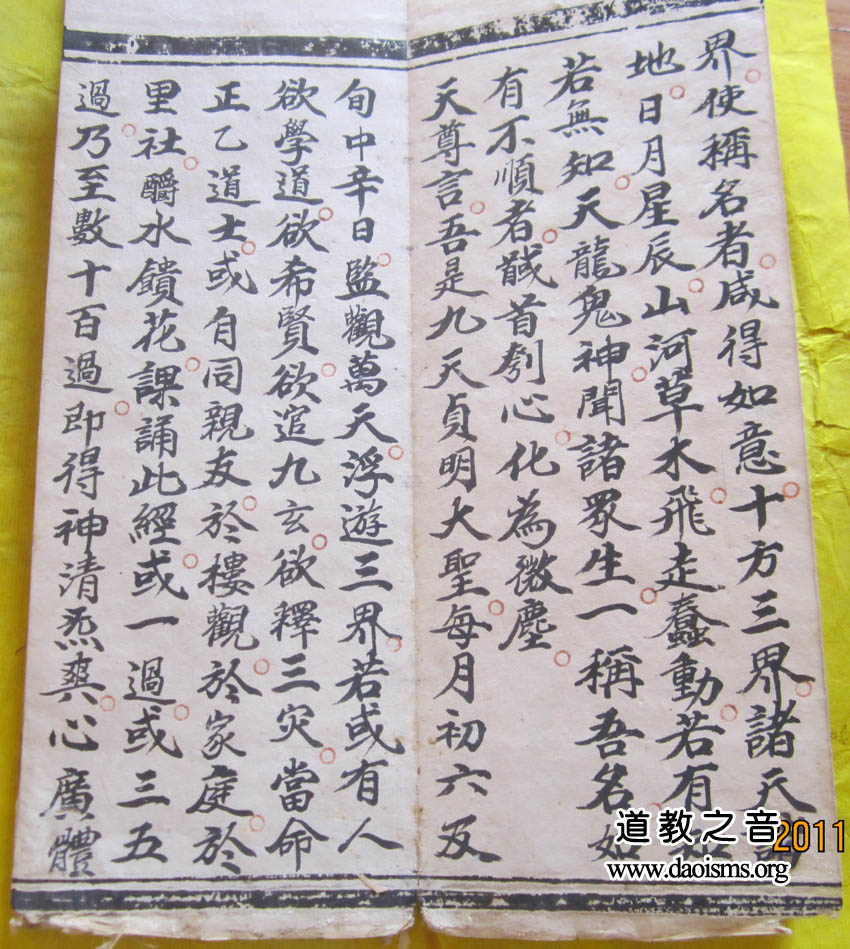 界使稱名者咸得如意十方三界諸天
地日月星辰山河草木飛走蠢動若有
若無知天龍鬼神聞諸眾生一稱吾名如
有不順者馘首刳心化為微塵
天尊言吾是九天貞明大聖每月初六及
旬中辛日監觀萬天浮遊三界若或有人
欲學道欲希賢欲追九玄欲釋三灾當命
正乙道士或自同親友於樓觀於家庭於
里社水饋花課誦此經或一過或三五
過乃至數十百過即得神清炁爽心廣體
道教之音
www.daoisms.org
2011